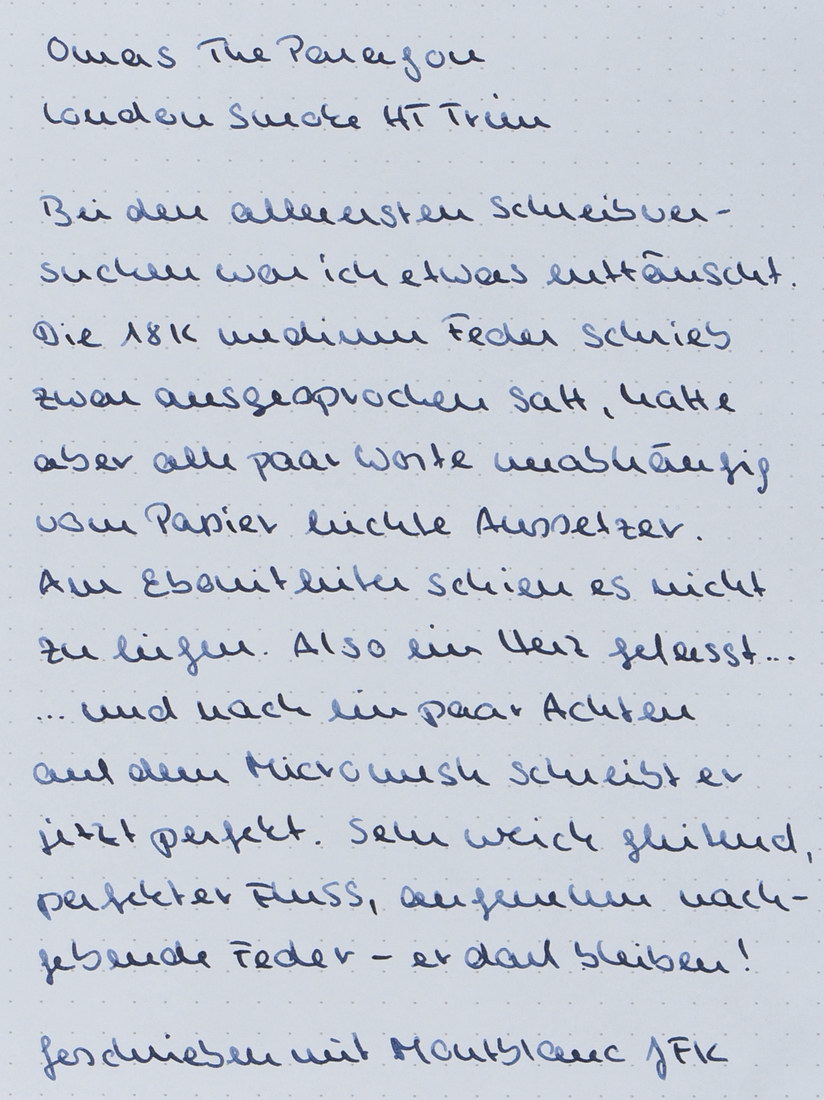 Omas The Paragon
London Smoke HT Trim
Bei den allerersten Schreibver-
suchen war ich etwas enttäuscht.
Die 18K medium Feder schrieb
zwar ausgesprochen satt, hatte
aber alle paar Worte unabhängig
vom Papier leichte Aussetzer.
Am Ebonitleiter schien es nicht
zu liegen. Also ein Herz gefasst...
... und nach ein paar Achten
auf dem Micromesh schreibt er
jetzt perfekt. Sehr weich gleitend,
perfekter Fluss, angenehm nach-
gebende Feder - er darf bleiben!
geschrieben mit Montblanc JFK